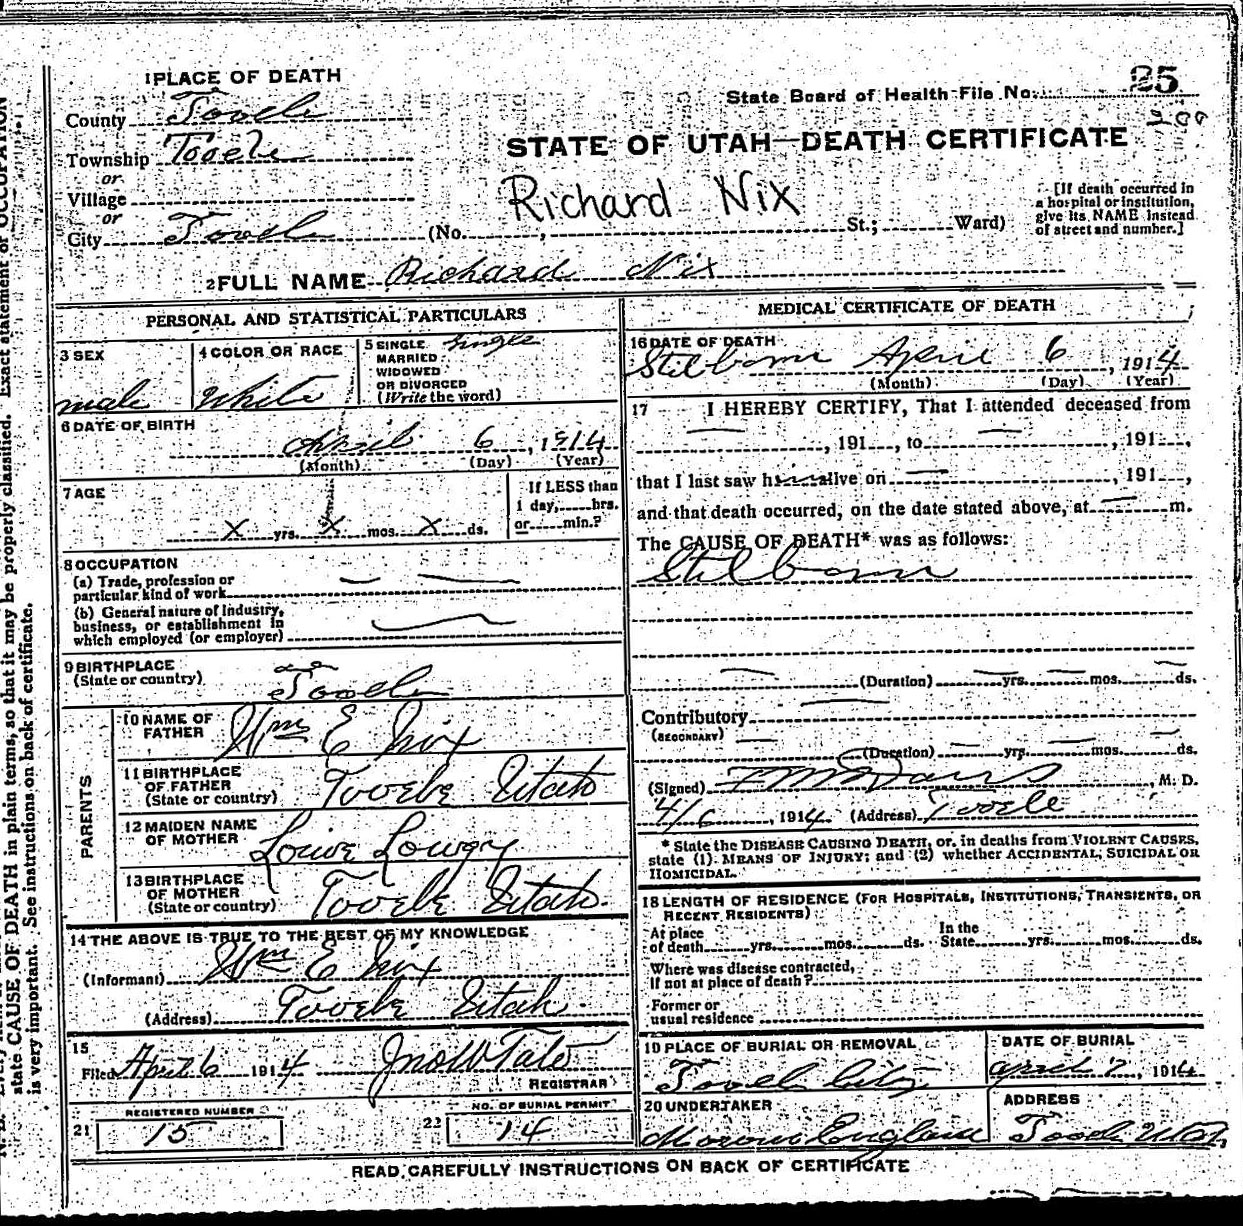 1 PLACE OF DEATH
County Tooele
Township Tooele
or
Village
or
City Tooele (No. , St.; Ward)
State Board of Health File No. 25
STATE OF UTAH—DEATH CERTIFICATE
Richard Nix
[If death occurred in
a hospital or institution,
give its NAME instead
of street and number.]
2 FULL NAME Richard Nix
PERSONAL AND STATISTICAL PARTICULARS
3 SEX
male
4 COLOR OR RACE
White
5 SINGLE Single
MARRIED
WIDOWED
OR DIVORCED
(Write the word)
6 DATE OF BIRTH
April 6, 1914
(Month) (Day) (Year)
7 AGE
X yrs. X mos. X ds.
If LESS than
1 day, hrs.
or min.?
8 OCCUPATION
(a) Trade, profession or
particular kind of work
(b) General nature of Industry,
business, or establishment in
which employed (or employer)
9 BIRTHPLACE
(State or country)
Tooele
PARENTS
10 NAME OF
FATHER
Wm E Nix
11 BIRTHPLACE
OF FATHER
(State or country)
Tooele Utah
12 MAIDEN NAME
OF MOTHER
Louise Lowry
13 BIRTHPLACE
OF MOTHER
(State or country)
Tooele Utah.
14 THE ABOVE IS TRUE TO THE BEST OF MY KNOWLEDGE
(Informant) Wm E Nix
(Address) Tooele Utah
15
Filed April 6 1914 Jno W Tate
REGISTRAR
REGISTERED NUMBER
21 15
NO. OF BURIAL PERMIT
22 14
MEDICAL CERTIFICATE OF DEATH
16 DATE OF DEATH
Stilborn April 6, 1914
(Month) (Day) (Year)
17 I HEREBY CERTIFY, That I attended deceased from
, 191 , to , 191 ,
that I last saw h alive on , 191 ,
and that death occurred, on the date stated above, at m.
The CAUSE OF DEATH* was as follows:
Stilborn
(Duration) yrs. mos. ds.
Contributory
(SECONDARY)
(Duration) yrs. mos. ds.
(Signed) Davis M. D.
4/6, 1914. (Address) Tooele
* State the DISEASE CAUSING DEATH, or, in deaths from VIOLENT CAUSES,
state (1) MEANS OF INJURY; and (2) whether ACCIDENTAL, SUICIDAL OR
HOMICIDAL.
18 LENGTH OF RESIDENCE (FOR HOSPITALS, INSTITUTIONS, TRANSIENTS, OR
RECENT RESIDENTS)
At place In the
of death yrs. mos. ds. State yrs. mos. ds.
Where was disease contracted,
If not at place of death?
Former or
usual residence
19 PLACE OF BURIAL OR REMOVAL
Tooele City
DATE OF BURIAL
April 7, 1914
20 UNDERTAKER
England
ADDRESS
Tooele Utah
READ CAREFULLY INSTRUCTIONS ON BACK OF CERTIFICATE
state CAUSE OF DEATH in plain terms, so that it may be properly classified. Exact statement of OCCUPATION
is very important. See instructions on back of certificate.